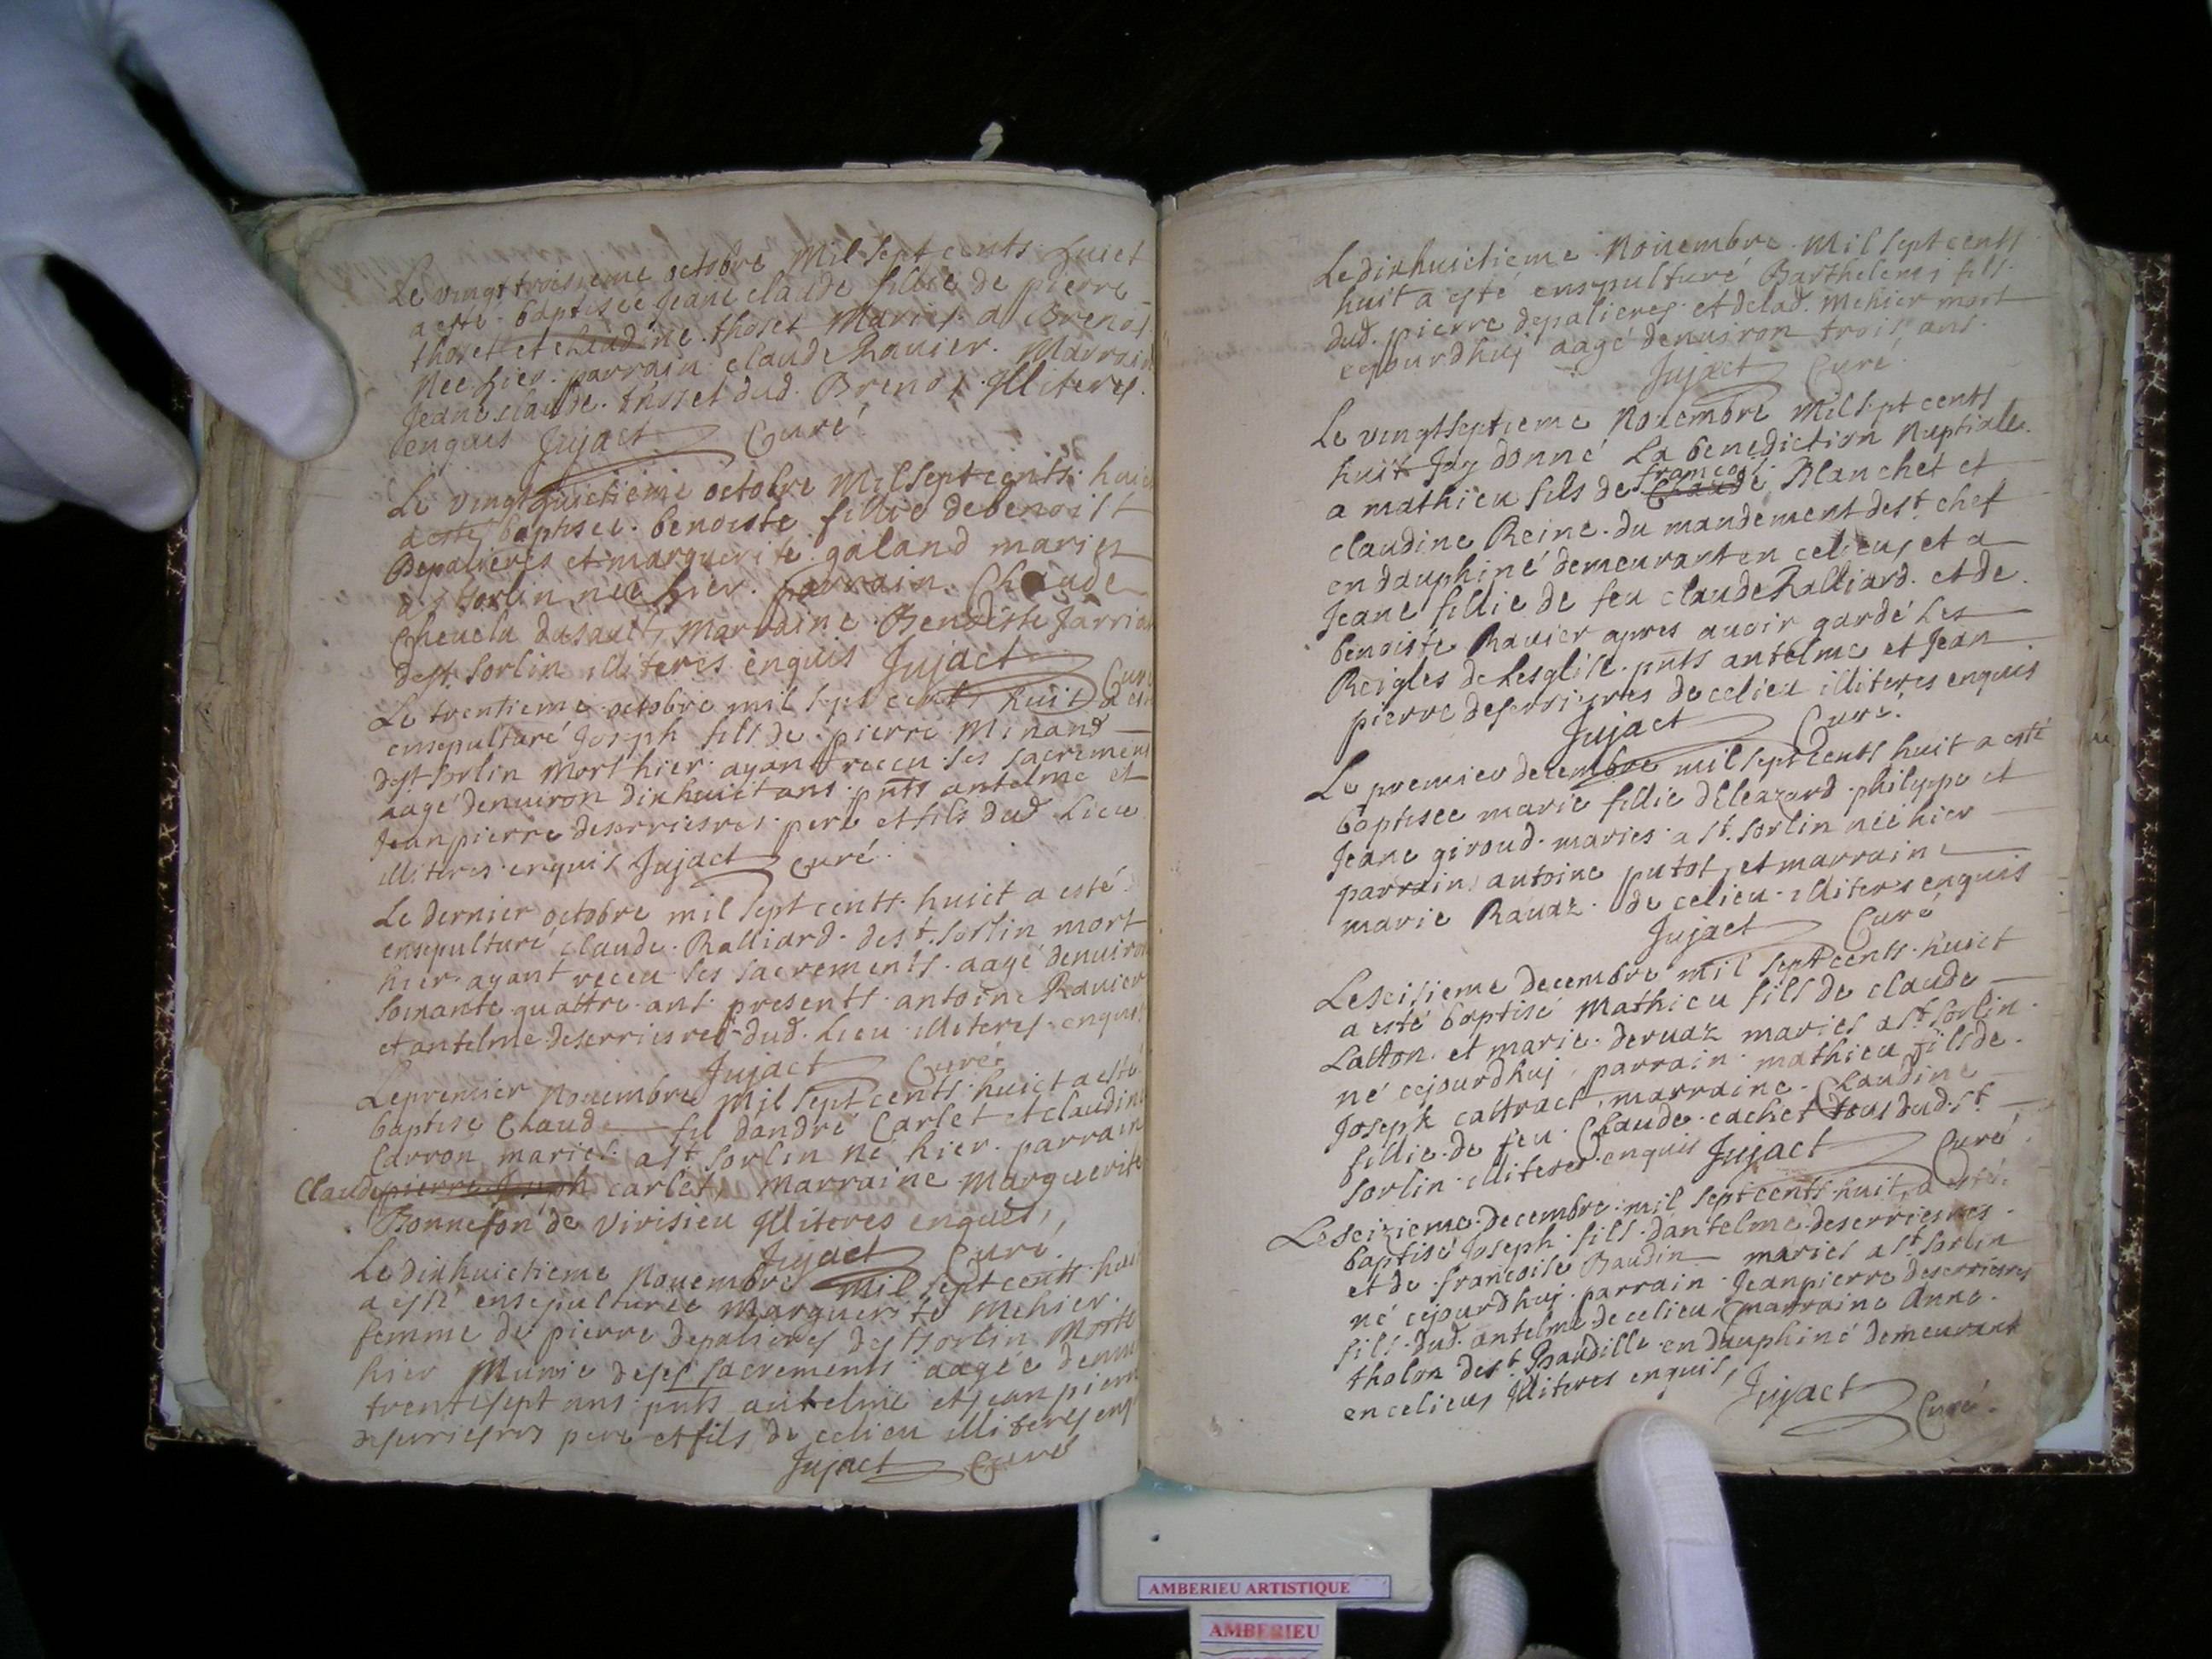 Le vingt troisieme octobre Mil sept cents huict
a esté baptisée Jeane claude fillie de pierre
thoset et claudine thoset Mariés a Brenos
Née hier parrain claude Ravier Marraine
Jeane claude thoset dud. Brenos Illiteres
enquis Jujact Curé
Le vingthuictieme octobre Mil sept cents huict
a esté baptisée benoiste fillie de benoist
Depalieres et marguerite galand mariés
a st sorlin née hier parrain Claude
Chevelu dusault, Marraine Benoiste Jarrin
de st Sorlin illiteres enquis Jujact Curé
Le trentieme octobre mil sept cents huit a esté
ensepulturé Joseph fils de pierre Minand
de st Sorlin Mort hier ayant receu ses sacrements
aagé denuiron dixhuict ans pnts antelme et
Jeanpierre deserriesres pere et fils dud Lieu
illiteres enquis Jujact curé
Le dernier octobre mil sept cents huict a esté
ensepulturé claude Ralliard de st. sorlin mort
hier ayant receu ses sacrements aagé denuiron
soixante quattre ans presents antoine Ravier
et antelme deserriesres dud. Lieu illiteres enquis
Jujact Curé
Le premier Nouembre Mil sept cents huict a esté
baptisé Claude fil dandré Carlet et claudine
Carron mariés a st sorlin né hier parrain
Claude pierre Joseph carlet, Marraine Marguerite
Bonnefon de Virisieu Illiteres enquis,
Jujact Curé
Le dixhuictieme Nouembre Mil sept cents huict
a esté ensepulturée Marguerite Mehier
femme de pierre depalieres de st sorlin Morte
hier Munie de ses sacrements aagée denuiron
trentesept ans pnts antelme et jeanpierre
deserriesres pere et fils de celieu illiteres enquis
Jujact Curé
Le dixhuictieme Nouembre Mil sept cents
huit a esté ensepulturé Barthelemi fils
dud. pierre depalieres et delad. Mehier mort
cejourdhuj aagé denuiron trois ans
Jujact Curé
Le vingtseptieme Nouembre Mil sept cents
huit Jay donné La benediction Nuptiale
francois
a mathieu fils de Claude Blanchet et
claudine Reine du mandement de st chef
en dauphiné demeurant en celieu, et a
Jeane fillie de feu claude Ralliard et de
benoiste Ravier apres auoir gardé Les
Reigles de Lesglise pnts antelme et Jean
pierre deserriesres de celieu illiteres enquis
Jujact Curé
Le premier decembre mil sept cents huit a esté
baptisée marie fillie d'Eleazard philippe et
Jeane giroud mariés a st. sorlin née hier
parrain antoine putot, et marraine
marie Ravaz de celieu illiteres enquis
Jujact Curé
Le seisieme decembre mil sept cents huict
a esté baptisé Mathieu fils de claude
Laston et marie deruaz mariés a st sorlin
né cejourdhuj, parrain mathieu fils de
Joseph castract, marraine Claudine
fillie de feu Claude cachet tous dud. st
sorlin illiteres enquis Jujact Curé
Le seizieme decembre mil sept cents huit a esté
baptisé Joseph fils dantelme deserriesres
et de francoise Baudin mariés a st sorlin
né cejourdhuj parrain Jeanpierre deserriesres
fils dud. antelme de celieu, marraine Anne
tholon de st. Baudille en dauphiné demeurant
en celieu, Illiteres enquis, Jujact
Curé
AMBERIEU ARTISTIQUE
AMBERIEU